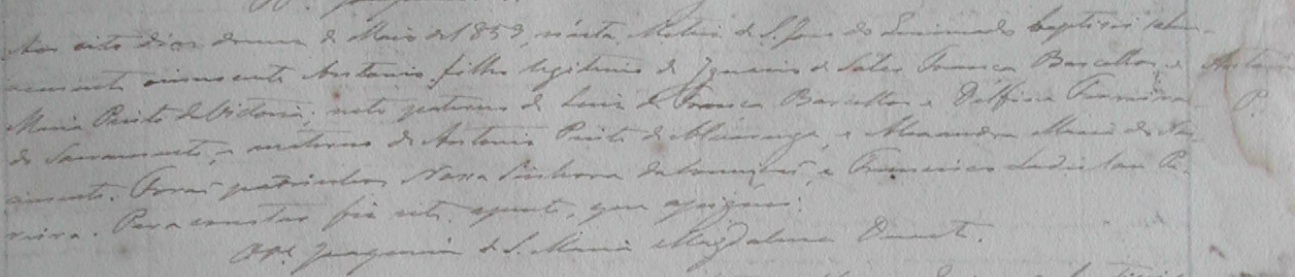 Aos oito dias do mez de Maio de 1859, n'esta Matriz de S. Jose do baptisei solem-
nemente o innocente Antonio, filho legitimo de Ignacio de Sales Franca Barcellos, e Antonio
Maria Pinto da Victoria; neto paterno de Luis de Franca Barcellos e Delfina Ferreira P.
do Sacramento, e materno de Antonio Pinto de Alvarenga, e Alexandra Maria do Nas-
cimento. Foraõ padrinhos Nossa Senhora da Conceiçaõ, e Francisco Ladislau Pe-
reira. Para constar fiz este assento, que assignei.
Joaquim de S. Maria Magdalena Duarte.